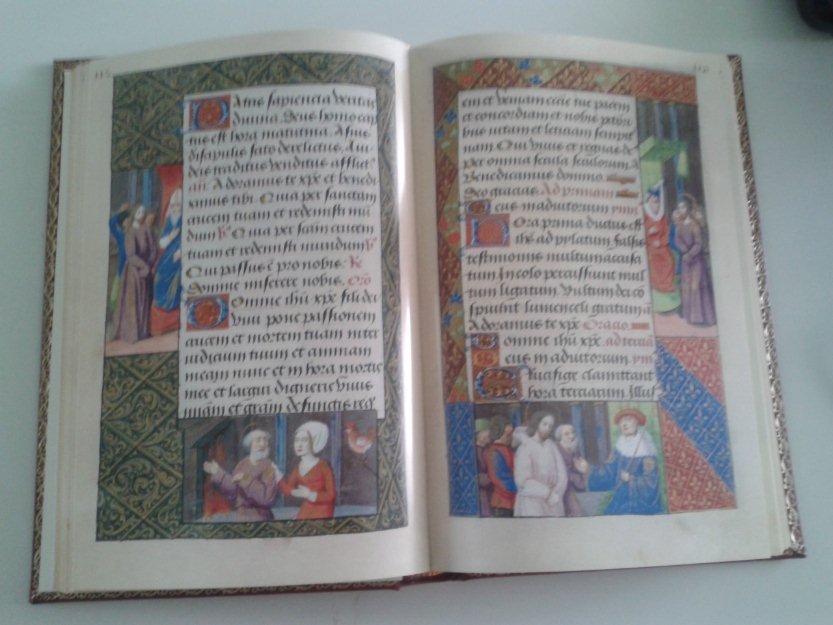 115
Patris sapiencia veritas
divina. Deus homo cap
tus est hora matutina. A suis
discipulis cito derelictus. A iu
deis traditus venditus afflict9
añ. Adoramus te xp̄e et benedi
ximus tibi. Quia per sanctam
crucem tuam et redemisti mū
dum. Quia per sc̄am crucem
tuam et redemisti mundum
Qui passus ē pro nobis:
Domine miserere nobis. Orō
Domine ihū xp̄e fili dei
vivi pone passionem
crucem et mortem tuam inter
iudicium tuum et animam
meam nunc et in hora mortis
mee et largiri digneris vivis
miam et grām defunctis req̄
em et veniam eccie tue pacem
et concordiam et nobis pctori
bus vitam et leticiam sempit
nam. Qui vivis et regnas de9
per omnia secula seculorum. A
Benedicamus domino.
Deo gracias. Ad primam
Deus in adiutorium ymn9
Hora prima ductus est
ihs ad pylatum. falsis
testimoniis multum accusa
tum. In colo percussiunt ma
tum ligatum. Vultum dei cō
spuunt lumen celi gratum añ
Adoramus te xp̄e Oracio
Domine ihū xp̄e. ad terciā
Deus in adiutorium. ym
Crucifige clamitant
hora terciarum. Illus